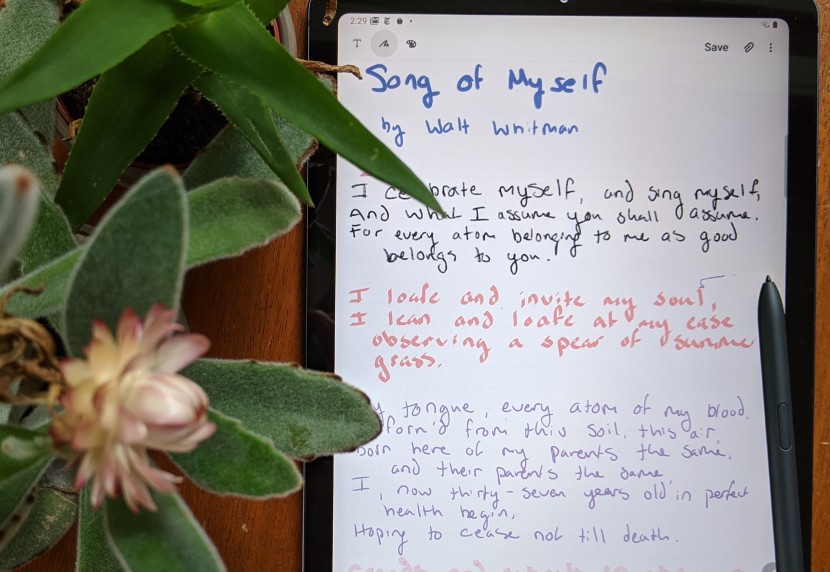 2:29
T Save
Song of Myself
by Walt Whitman
I ce brate myself, and sing myself,
And what I assume you shall assume.
For every atom belonging to me as good
belongs to you.
I loafe and invite my soul,
I lean and loafe at my ease
observing a spear of summe
grass.
y tongue, every atom of my blood.
form'd from this soil, this air,
born here of my parents the same,
and their parents the same,
I, now thirty-seven years old in perfect
health begin,
Hoping to cease not till death.